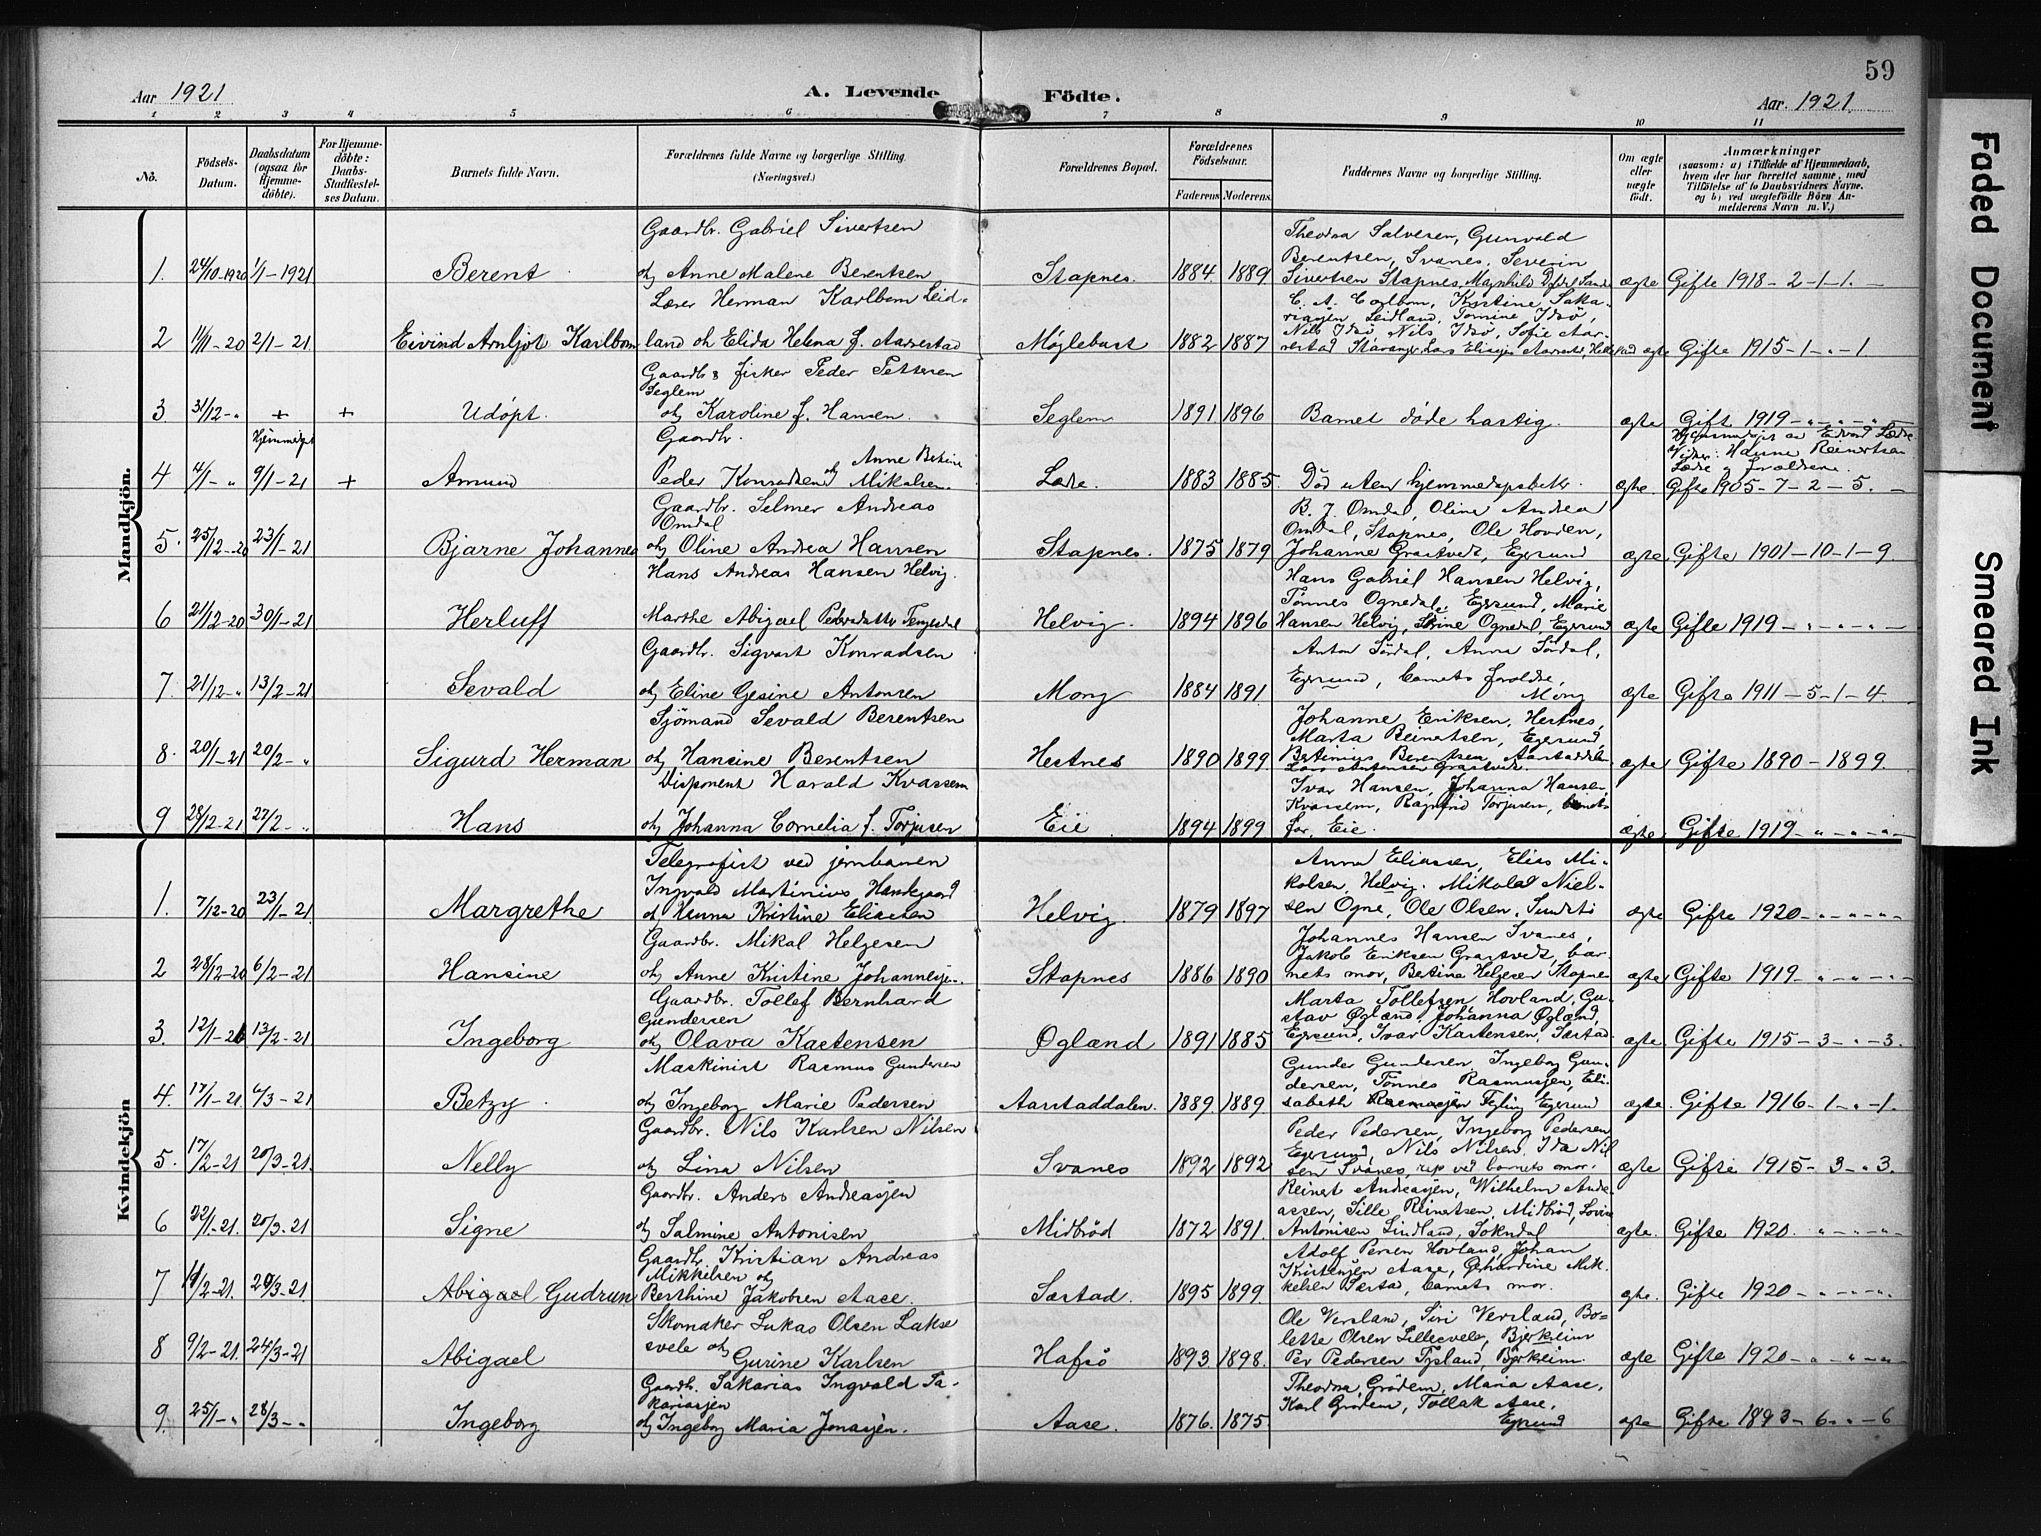 59
Aar 1921
A. Levende Födte.
Aar. 1921.
1 2 3 4 5 6 7 8 9 10 11
No.
Födsels-Datum.
Daabsdatum (ogsaa for Hjemme-döbte).
For Hjemme-döbte: Daabs-Stadfæstel-ses Datum.
Barnets fulde Navn.
Forældrenes fulde Navne og borgerlige Stilling. (Næringsvei.)
Forældrenes Bopæl.
Forældrenes Födselsaar.
Faderens Moderens
Faddernes Navne og borgerlige Stilling.
Om ægte eller uægte født.
Anmærkninger
(saasom: a) i Tilfælde af Hjemmedaab,
hvem der har forrettet samme, med
Tilföielse af to Daabsvidners Navne.
og b) ved uægtefödte Börn An-
melderens Navn m. V.)
Mandkjön.
1. 24/10-1920 1/1-1921 Berent
Gaardbr. Gabriel Sivertsen
og Anne Malene Berentsen
Stapnes. 1884. 1889.
Theodra Salvesen, Gunvald
Berentsen, Svanes, Severin
Sivertsen Stapnes,
ægte Gifte 1918-2-1-1.
2 2/1-21 Eivind Arnljot Karlbom
Lærer Herman Karlbom Leid-
land og Elida Helena f. Aarrestad
1882 1887
Nils Idsø, Sofie Aar-
restad Stavanger,
ægte Gifte 1915-1-„-1
3 31/12-„ + + Udøpt.
Gaardb & fisker Peder Pettersen
Seglem
og Karoline f. Hansen.
Seglem 1891 1896 Barnet døde hastig. ægte Gift 1919-„-„-„
4 4/1-„ Hjemmedøpt 9/1-21 + Amund
Gaardbr.
Peder Konradsen og Anne Mikalsen
1883 1885. Død uten ægte. Gifte 1905-7-2-5.
5. 25/12-20 23/1-21 Bjarne Johannes
Gaardbr. Selmer Andreas
Omdal
og Oline Andrea Hansen
Stapnes. 1875 1879
B. J. Omdal, Oline Andrea
Omdal, Stapnes, Ole Hovden,
Johanne Grastveit, Egersund
ægte Gifte 1901-10-1-9.
6 21/12-20 30/1-21 Herluff
Hans Andreas Hansen Helvig.
Marthe Abigael Pedersdatter Tengesdal
Helvig. 1894 1896
Hans Gabriel Hansen Helvig,
Tønnes Ognedal, Egersund, Marie
Hansen Helvig, Ognedal, Egersund
ægte Gifte 1919-„-„-„
7. 21/12-„ 13/2-21 Sevald
Gaardbr. Sigvart Konradsen
og Eline Gesine Antonsen
Mong 1884 1891.
Anton Sørdal, Anna Sørdal,
Egersund, barnets forældre,
Mong
ægte Gifte 1911-5-1-4.
8. 20/1-21 20/2-„ Sigurd Herman
Sjömand Sevald Berentsen
og Hansine Berentsen
Hestnes 1890 1899
Johanne Eriksen, Hestnes,
Marta Reinertsen, Egersund,
ægte Gifte 1890-1899.
9 27/2-„ Hans
Disponent Harald Kvassem
og Johanna Cornelia f. Torjusen
Eie 1894 1899
Ivar Hansen, Johanna Hansen,
Kvassem, Ragnfrid Torjusen, barnets
far, Eie.
ægte Gifte 1919-„-„-„
Kvindekjön
1. 7/12-20 23/1-21 Margrethe
Telegrafist ved jernbanen
Ingvald Martinius Haukgaard
og Hanna Kristine Eliassen
Helvig. 1879 1897
Anna Eliassen, Elias Mi-
kalsen, Helvig. Mikal Niel-
sen Ogne, Ole Olsen,
ægte Gifte 1920-„-„-„
2 28/12-20 6/2-21 Hansine
Gaardbr. Mikal Helgesen
og Anne Kristine Johannesjen.
Stapnes 1886 1890
Johannes Hansen Svanes,
Jakob Eriksen Grastveit, bar-
nets mor, Betine Helgesen Stapnes
ægte Gifte 1919-„-„-„
3. 12/1-21 13/2-21 Ingeborg
Gaardbr. Tollef Bernhard
Gundersen
og Olava Kastensen
Øgland 1891 1885
Marta Tollefsen Hovland, Gu-
stav Øgland, Johanna Øgland
Egersund, Ivar Kastensen, Sæstad
ægte Gifte 1915-3-„-3.
4. 17/1-21. 6/3-21 Betzy.
Maskinist Rasmus Gundersen
og Ingeborg Marie Pedersen
Aarstaddalen. 1889. 1889
Gunder Gundersen, Ingeborg Gun-
dersen, Tønnes Rasmusjen, Eli-
sabeth Rasmusjen Egersund
ægte. Gifte 1916-1-„-1.
5. 17/2-21. 20/3-21. Nelly
Gaardbr. Nils Karlsen Nilsen
og Lina Nilsen
Svanes 1892 1892
Peder Pedersen, Ingeborg Pedersen
Egersund, Nils Nilsen, Ida Nil
sen Svanes, rep ved barnets mor.
ægte Gifte 1915-3-„-3.
6 22/1-21. 20/3-21 Signe
Gaardbr. Anders Andreasjen
og Salmine Antonisen
Midbrød 1872 1891.
Reinert Andreasjen, Wilhelm Andre-
assen, Sille Reinertsen, Midbrød,
Antonisen Lindland, Sokndal
ægte. Gifte 1920. „-„-„
7 20/3-21. Abigael Gudrun
Gaardbr Kristian Andreas
Mikkelsen og
Berthine Jakobsen Aase.
Sæstad. 1895 1899.
Adolf Persen Hovland, Johan
Kristensjen Aase, Gerhardine Mik-
kelsen Sæstad, barnets mor.
ægte. Gifte 1920-„-„-„
8 9/2-21. 24/3-21 Abigael
Skomaker Lukas Olsen Lakse
svele og Gurine Karlsen
Hafsø 1893 1898.
Ole Versland, Siri Versland, Bo-
lette Olsen Bjerkreim
Per Pedersen Tysland, Bjerkreim.
ægte Gifte 1920-„-„-„
9. 25/1-„ 28/3-„ Ingeborg
Gaardb. Sakarias Ingvald Sa-
kariasjen
og Ingeborg Maria Jonasjen.
Aase. 1876. 1875
Theodra Grødem, Maria Aase,
Karl Grødem, Tollak Aase,
Egersund
ægte Gifte 1893-6-„-6
Faded Document
Smeared Ink